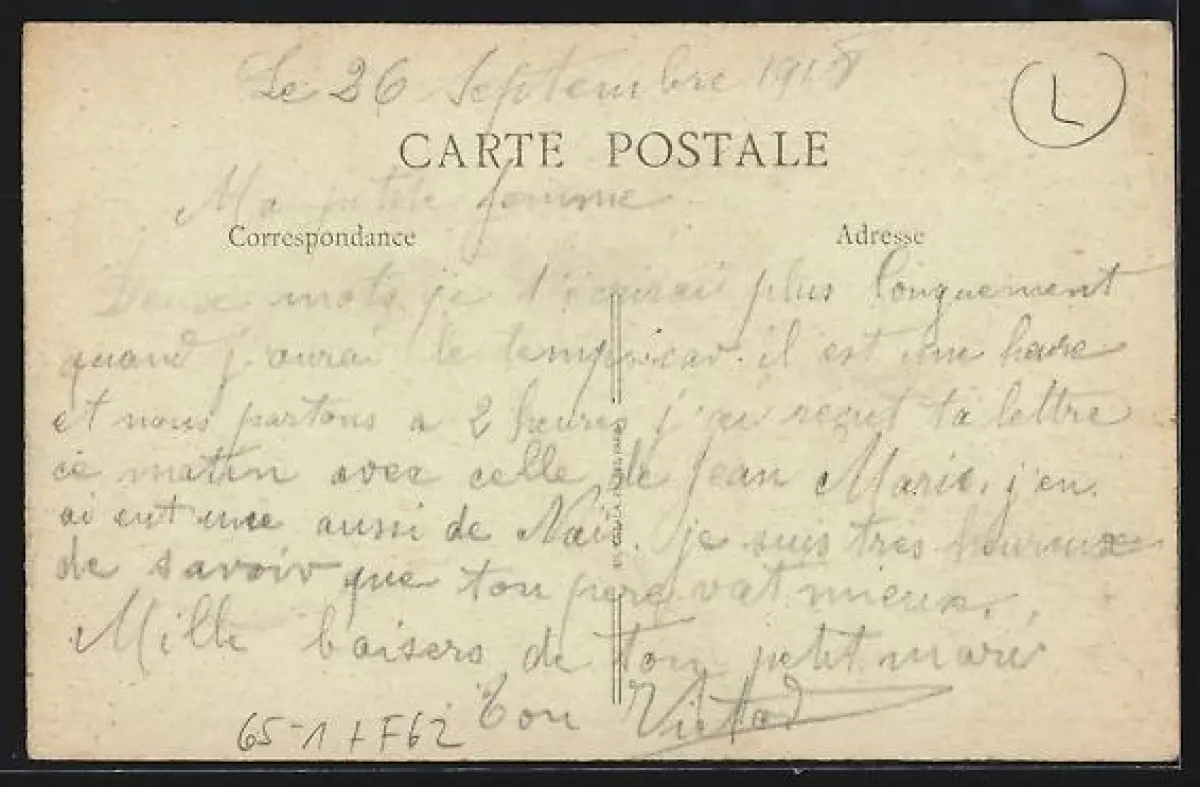 Le 26 Septembre 1918
L
CARTE POSTALE
Ma petite femme
Correspondance
Adresse
Deux mots je t'écrirai plus longuement
quand j'aurai le temps car il est une heure
et nous partons a 2 heures j'ai reçut ta lettre
ce matin avec celle de Jean Marie, j'en
ai eut une aussi de Naïs. je suis très heureux
de savoir que ton père vat mieux.
Mille baisers de ton petit mari
Ton
65-1 + F62